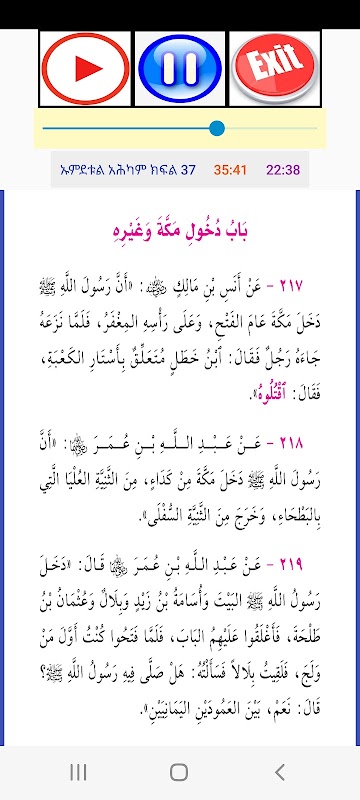 Exit
ኡምደቱል አሕካም ክፍል 37 35:41 22:38
بَابُ دُخُولِ مَكَّةَ وَغَيْرِهِ
٢١٧ - عَنْ أَنَسِ بْنِ مَالِكٍ ﷺ: «أَنَّ رَسُولَ اللَّهِ ﷺ
دَخَلَ مَكَّةَ عَامَ الفَتْحِ، وَعَلَى رَأْسِهِ المِغْفَرُ، فَلَمَّا نَزَعَهُ
جَاءَهُ رَجُلٌ فَقَالَ: ٱبْنُ خَطَلٍ مُتَعَلِّقٌ بِأَسْتَارِ الكَعْبَةِ،
فَقَالَ: ٱقْتُلُوهُ».
٢١٨ - عَنْ عَبْدِ اللَّهِ بْنِ عُمَرَ: «أَنَّ
رَسُولَ اللَّهِ ﷺ دَخَلَ مَكَّةَ مِنْ كَدَاءٍ، مِنَ الثَّنِيَّةِ العُلْيَا الَّتِي
بِالبَطْحَاءِ، وَخَرَجَ مِنَ الثَّنِيَّةِ السُّفْلَى».
٢١٩ - عَنْ عَبْدِ اللَّهِ بْنِ عُمَرَ قَالَ: «دَخَلَ
رَسُولُ اللَّهِ ﷺ البَيْتَ وَأُسَامَةُ بْنُ زَيْدٍ وَبِلَالٌ وَعُثْمَانُ بْنُ
طَلْحَةَ، فَأَغْلَقُوا عَلَيْهِمُ البَابَ، فَلَمَّا فَتَحُوا كُنْتُ أَوَّلَ مَنْ
وَلَجَ، فَلَقِيتُ بِلَالاً فَسَأَلْتُهُ: هَلْ صَلَّى فِيهِ رَسُولُ اللَّهِ ﷺ؟
قَالَ: نَعَمْ، بَيْنَ العَمُودَيْنِ اليَمَانِيَيْنِ».